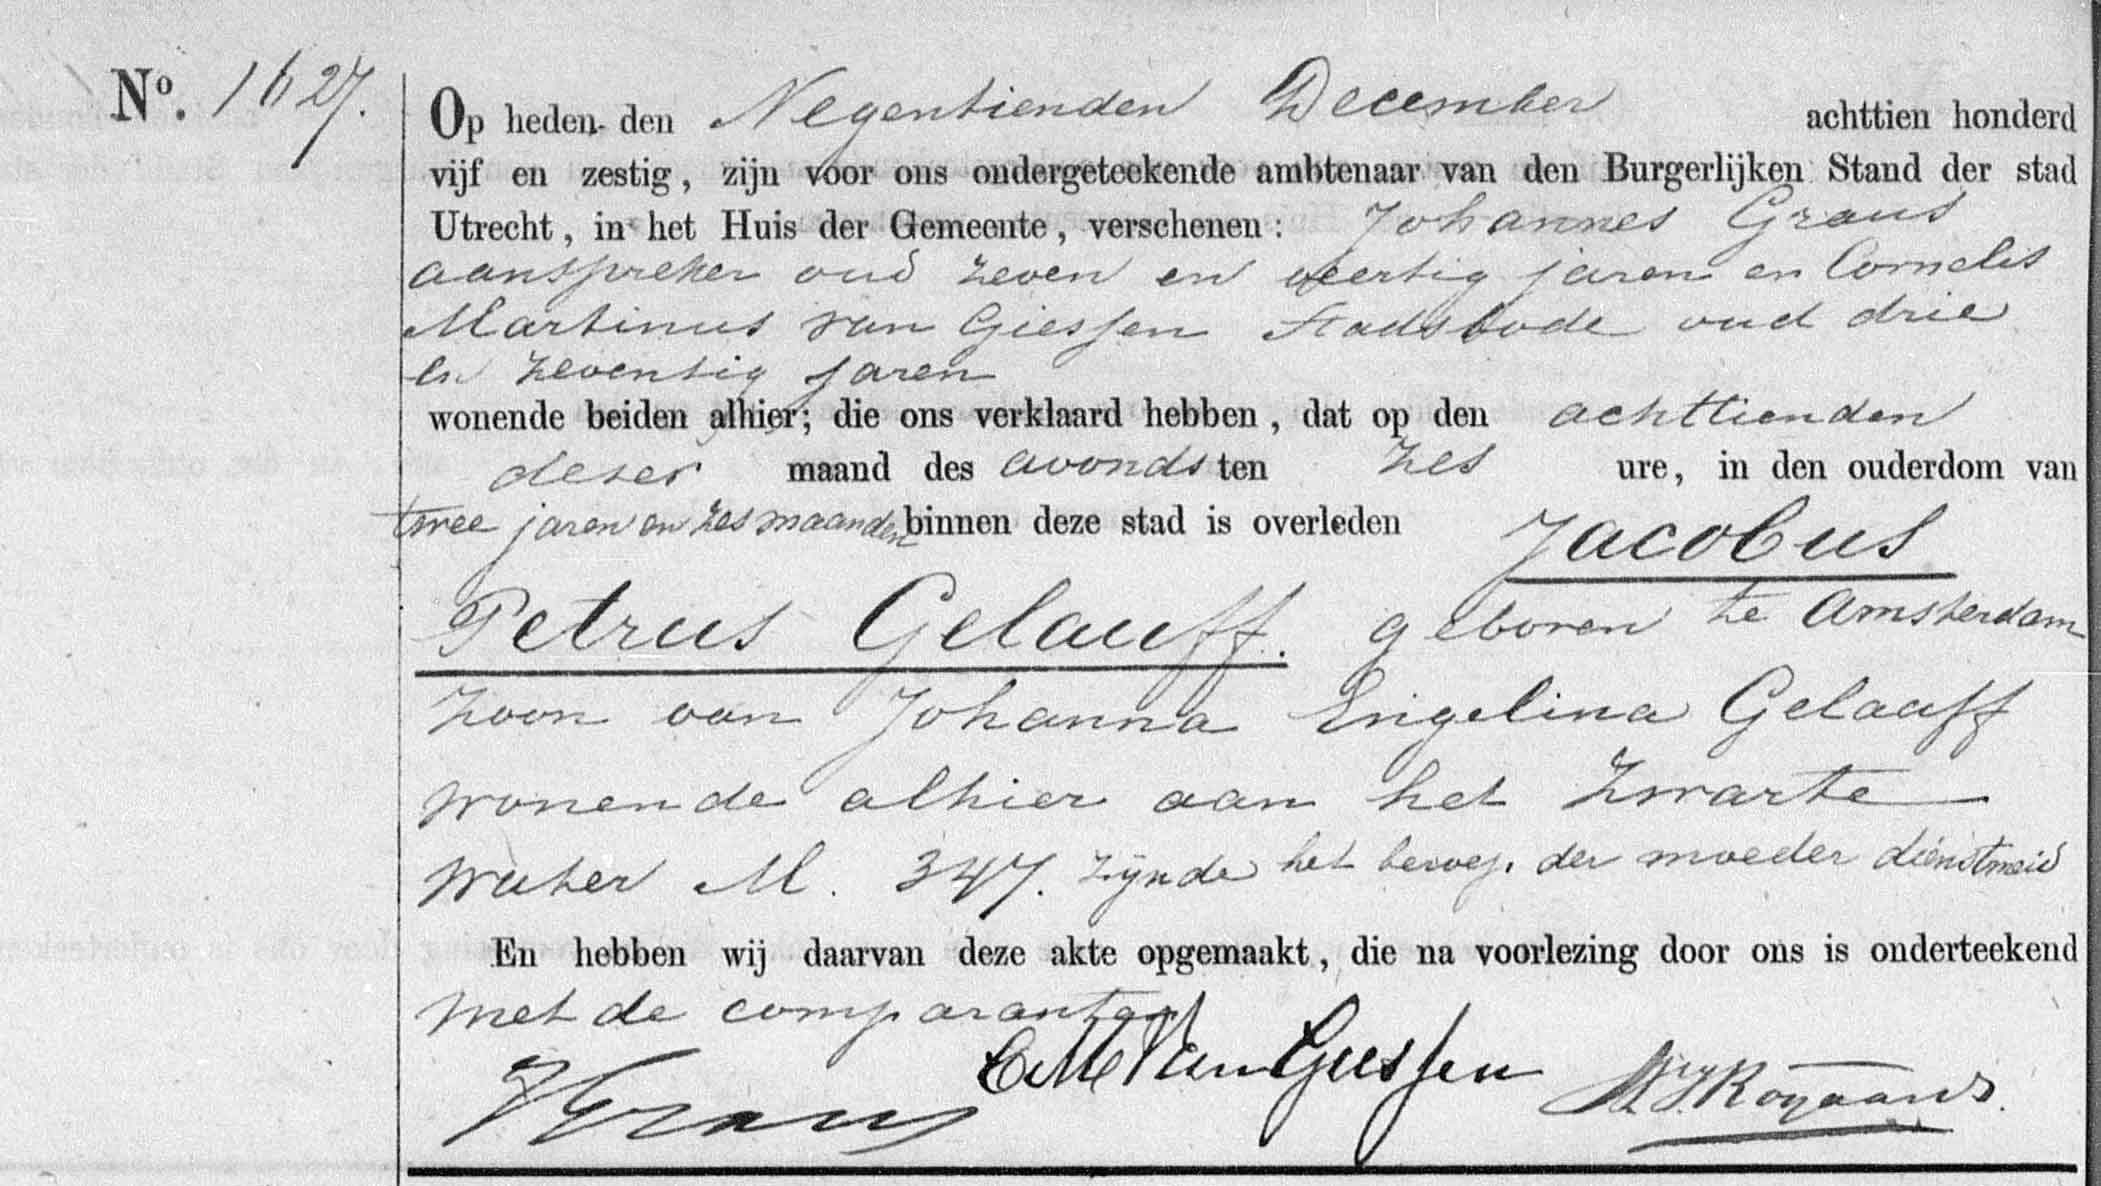 No. 1627.
Op heden den Negentienden December achttien honderd
vijf en zestig, zijn voor ons ondergeteekende ambtenaar van den Burgerlijken Stand der stad
Utrecht, in het Huis der Gemeente, verschenen: Johannes Graus
aanspreker oud zeven en veertig jaren en Cornelis
Martinus van Giessen Stadsbode oud drie
en zeventig jaren
wonende beiden alhier; die ons verklaard hebben, dat op den achttienden
dezer maand des avonds ten zes ure, in den ouderdom van
twee jaren en zes maanden binnen deze stad is overleden Jacobus
Petrus Gelauff. geboren te Amsterdam
Zoon van Johanna Engelina Gelauff
wonende alhier aan het Zwarte
water M. 347. zijnde het beroep der moeder dienstmeid
En hebben wij daarvan deze akte opgemaakt, die na voorlezing door ons is onderteekend
met de comparanten
JGraus CM Van Giessen Royaards.